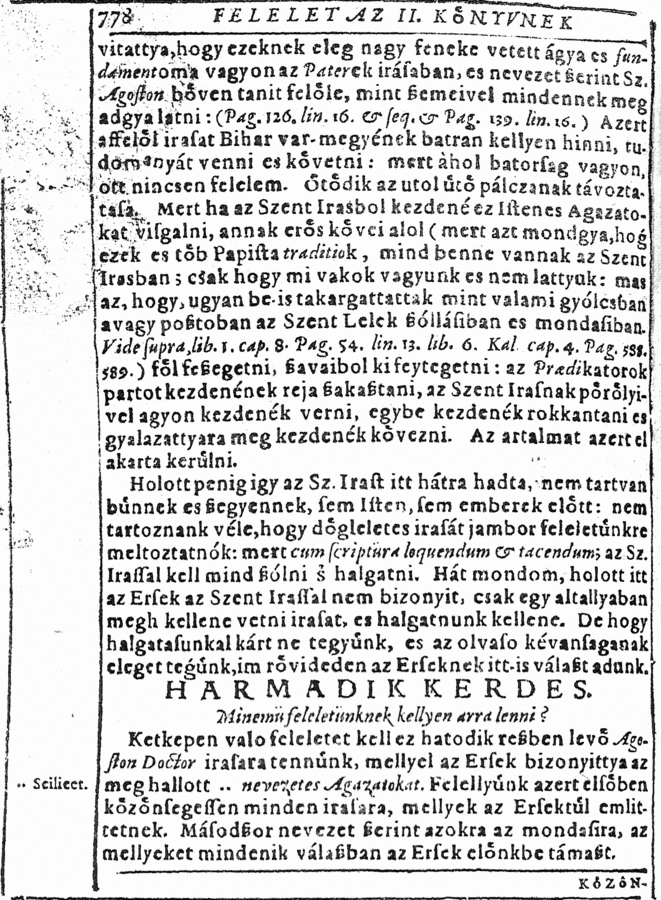 778 FELELET AZ II. KŐNYVNEK
vitattya,hogy ezeknek eleg nagy feneke vetett ágya es fun-
damentoma vagyon az Paterek irásaban, es nevezet ßerint Sz.
Agoston bőven tanit felőle, mint ßemeivel mindennek meg
adgya latni: (Pag. 126. lin. 16. & seq. & Pag. 139. lin. 16.) Azert
affelől irasat Bihar var-megyének batran kellyen hinni, tu-
domanyát venni es kővetni: mert ahol batorsag vagyon,
ott nincsen felelem. Őtődik az utol űtő pálczanak távozta-
tasa. Mert ha az Szent Irasbol kezdené ez Istenes Agazato-
kat visgalni, annak erős kővei alol (mert azt mondgya,hog
ezek es tőb Papista traditiok, mind benne vannak az Szent
Irasban; csak hogy mi vakok vagyunk es nem lattyuk: mas
az, hogy, ugyan be-is takargattattak mint valami gyólcsban
avagy poßtoban az Szent Lelek ßóllásiban es mondasiban.
Vide supra,lib. 1. cap. 8. Pag. 54. lin. 13. lib. 6. Kal. cap. 4. Pag. 588.
589.) fől feßegetni, ßavaibol ki feytegetni: az Prædikatorok
partot kezdenének reja ßakaßtani, az Szent Irasnak pőrőlyi-
vel agyon kezdenék verni, egybe kezdenék rokkantani es
gyalazattyara meg kezdenék kővezni. Az artalmat azert el
akarta kerűlni.
Holott penig igy az Sz. Irast itt hátra hadta, nem tartvan
bűnnek es ßegyennek, sem Isten, sem emberek előtt: nem
tartoznank véle,hogy dőgleletes irasát jambor feleletűnkre
meltoztatnók: mert cum scriptura loquendum & tacendum; az Sz.
Irassal kell mind ßólni s halgatni. Hát mondom, holott itt
az Ersek az Szent Irassal nem bizonyit, csak egy altallyaban
megh kellene vetni irasat, es halgatnunk kellene. De hogy
halgatasunkal kárt ne tegyűnk, es az olvaso kévansaganak
eleget tegűnk,im rővideden az Erseknek itt-isválaßt adunk.
HARMADIK KERDES.
Minemű feleletűnknek kellyen arra lenni?
Ketkepen valo feleletet kell ez hatodik reßben levő Ago-
ston Doctor irasara tennűnk, mellyel az Ersek bizonyittya az
·· Scilicet. meg hallott ·· nevezetes Agazatokat. Felellyűnk azert elsőben
kőzőnsegessen minden irasara, mellyek az Ersektűl emlit-
tetnek. Másodßor nevezet ßerint azokra az mondasira, az
mellyeket mindenik válaßban az Ersek előnkbe támaßt.
KŐZŐN-